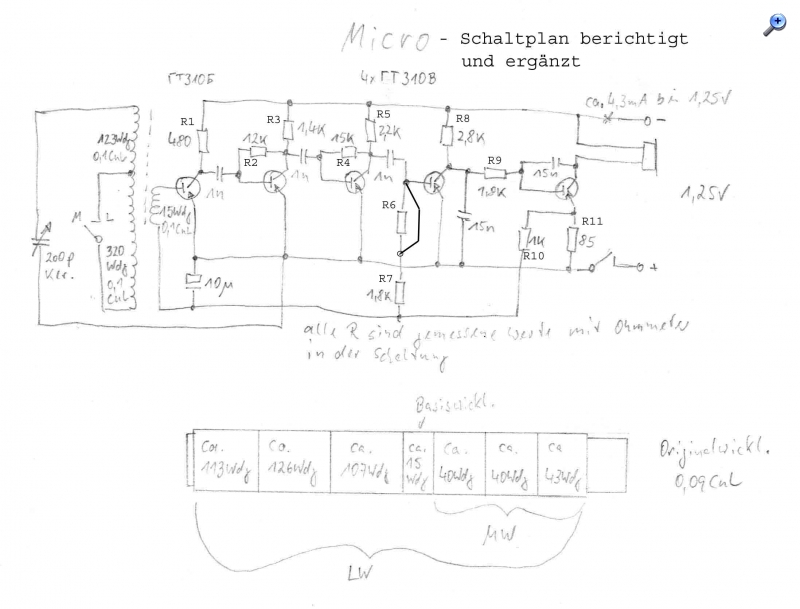 Micro - Schaltplan berichtigt
und ergänzt
ГТ310Б
4x ГТ310В
ca. 4,3mA bei 1,25V
R1
480
R3
1,4K
R5
2,2K
R8
2,8K
−
123Wdg
0,1CuL
12K
R2
1n
15K
R4
1n
1n
R9
1,8K
15n
1,25V
M
L
15Wdg
0,1CuL
R6
15n
1K
R10
R11
85
200p
Ker.
320
Wdg
0,1
CuL
10µ
R7
1,8K
+
alle R sind gemessene Werte mit Ohmmeter
in der Schaltung
Basiswickl.
ca.
113Wdg
ca.
126Wdg
ca.
107Wdg
ca.
15
Wdg
ca.
40Wdg
ca.
40Wdg
ca
43Wdg
Originalwickl.
0,09CuL
MW
LW